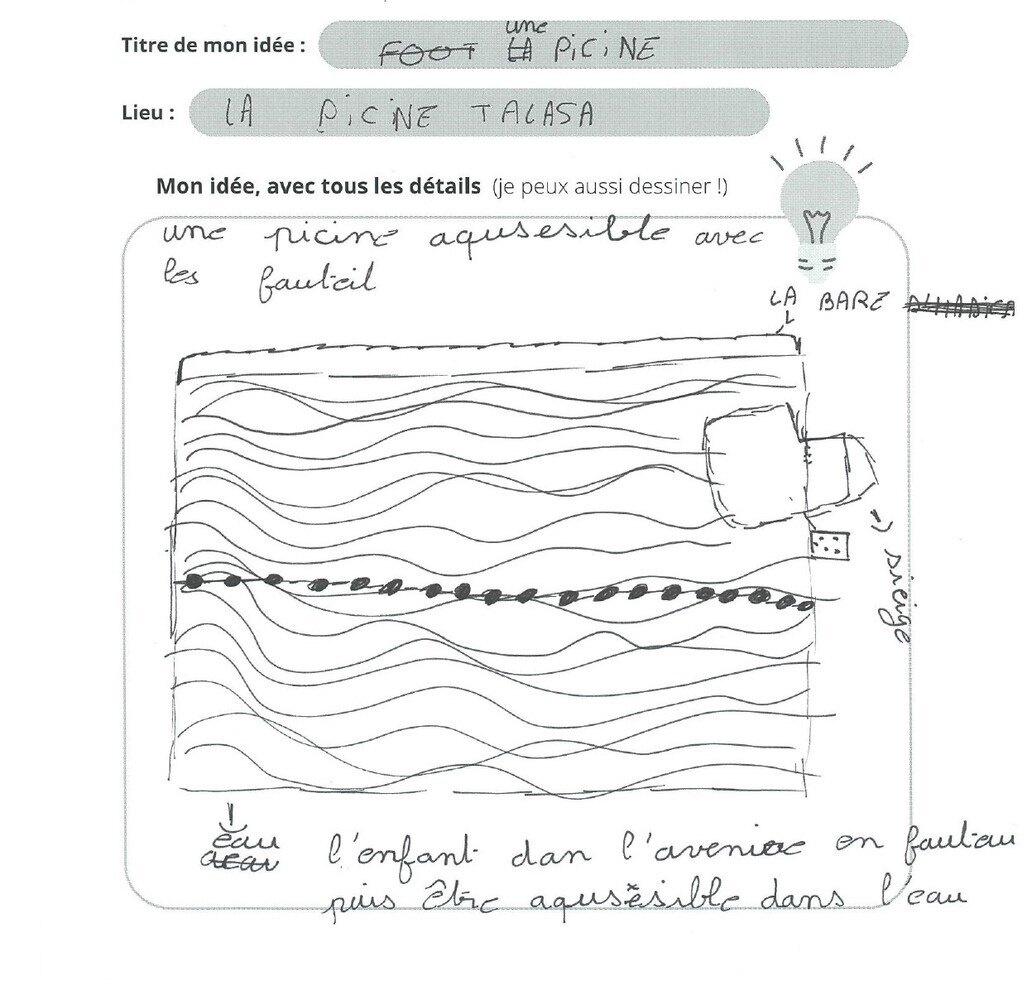 Titre de mon idée : FOOT LA une PiCiNE
Lieu : LA PiCiNE TALASA
Mon idée, avec tous les détails (je peux aussi dessiner !)
une picine aqusesible avec
les fauteil
LA BARE
sieige
eau
l'enfant dan l'avenire en fauteau
puis être aqusèsible dans l'eau